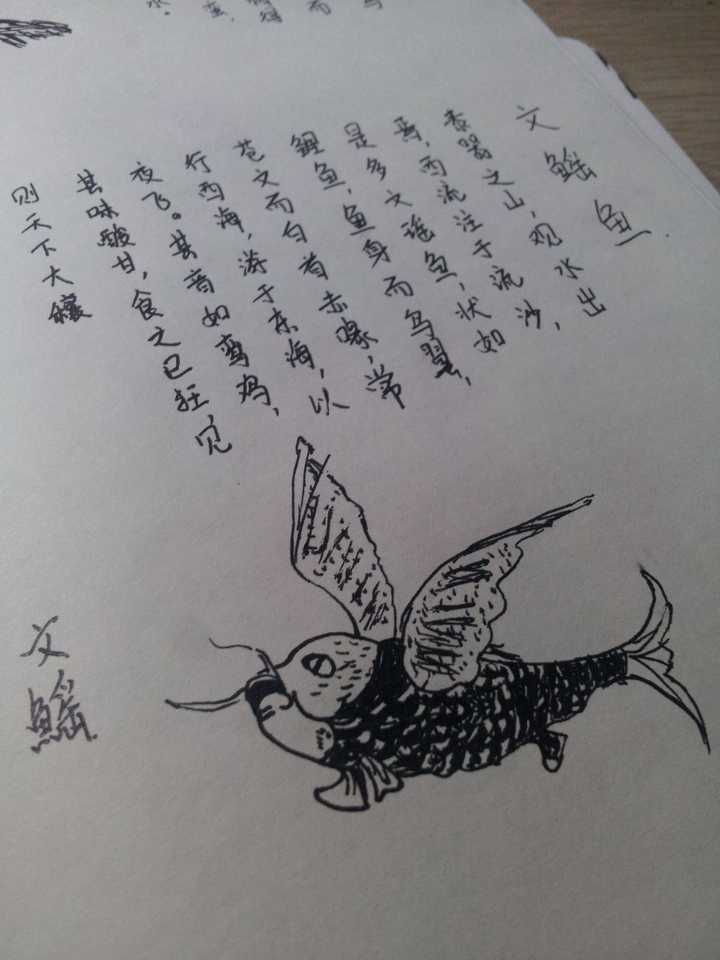 文鳐鱼
泰器之山，观水出
焉，西流注于流沙，
是多文瑶鱼，状如
鲤鱼，鱼身而鸟翼，
苍文而白首赤喙，常
行西海，游于东海，以
夜飞。其音如鸾鸡，
其味酸甘，食之已狂见
则天下大穰
文鳐